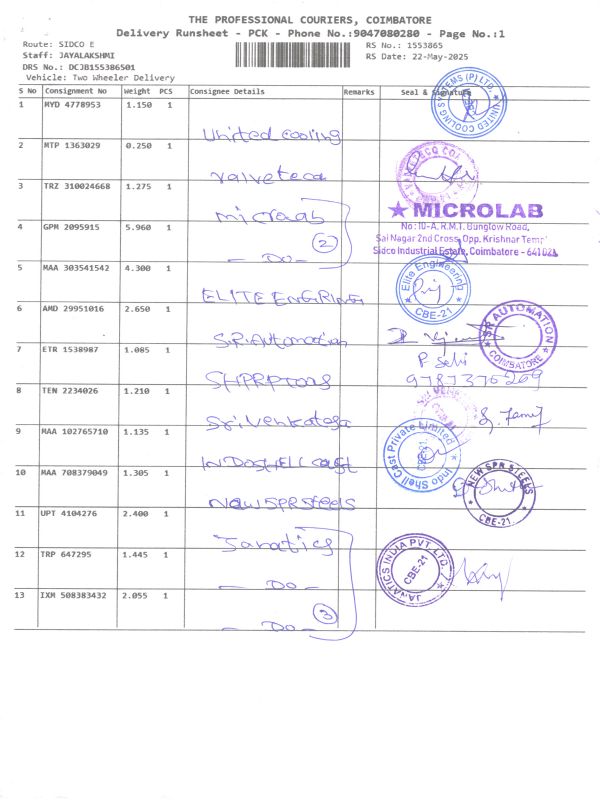 THE PROFESSIONAL COURIERS, COIMBATORE
Delivery Runsheet - PCK - Phone No.:9047080280 - Page No.:1
Route: SIDCO E
RS No.: 1553865
Staff: JAYALAKSHMI
RS Date: 22-May-2025
DRS No.: DCJB155386501
Vehicle: Two Wheeler Delivery
S No Consignment No Weight PCS Consignee Details Remarks Seal & Signature
1 MYD 4778953 1.150 1
United Cooling
UNITED COOLING SYSTEMS (P) LTD.
2 MTP 1363029 0.250 1
Valveteca
3 TRZ 310024668 1.275 1
Microab
★ MICROLAB
No: 10-A, R.M.T. Bunglow Road,
Sai Nagar 2nd Cross, Opp. Krishnar Templ
Sidco Industrial Estate, Coimbatore - 641021
4 GPM 2095915 5.960 1
— Do — 2
5 MAA 303541542 4.300 1
ELITE ENGRING
Elite Engineering
CBE-21
6 AMD 29951016 2.650 1
S.R.Automation
SR AUTOMATION
COIMBATORE
7 ETR 1538987 1.085 1
SHPRPTools
P Selvi
9787376269
8 TEN 2234026 1.210 1
Sri Venkatesa
SRI VENKA
9 MAA 102765710 1.135 1
INDOSHELL cast
Indo Shell Cast Private Limited
10 MAA 708379049 1.305 1
NEW SPR Steels
NEW SPR STEELS
CBE-21.
11 UPT 4104276 2.400 1
Janatics
JANATICS INDIA PVT. LTD.,
CBE-21
12 TRP 647295 1.445 1
— Do —
13 IXM 508383432 2.055 1
— Do — 3